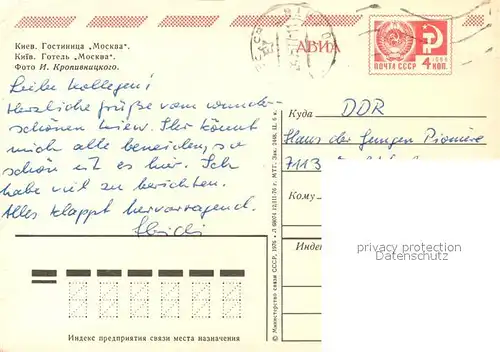 Киев. Гостиница „Москва“.
Київ. Готель „Москва“.
Фото И. Кропивницкого.
АВИА
ПОЧТА СССР
4 КОП.
Liebe Kollegen!
Herzliche Grüße vom wunder-
schönen Kiew. Ihr könnt
mich alle beneiden, so
schön ist es hier. Ich
habe viel zu berichten.
Alles klappt hervorragend.
Heidi
Куда DDR
Haus der Jungen Pioniere
7113
Кому
Индек
privacy protection
Datenschutz
© Министерство связи СССР, 1976
Индекс предприятия связи места назначения